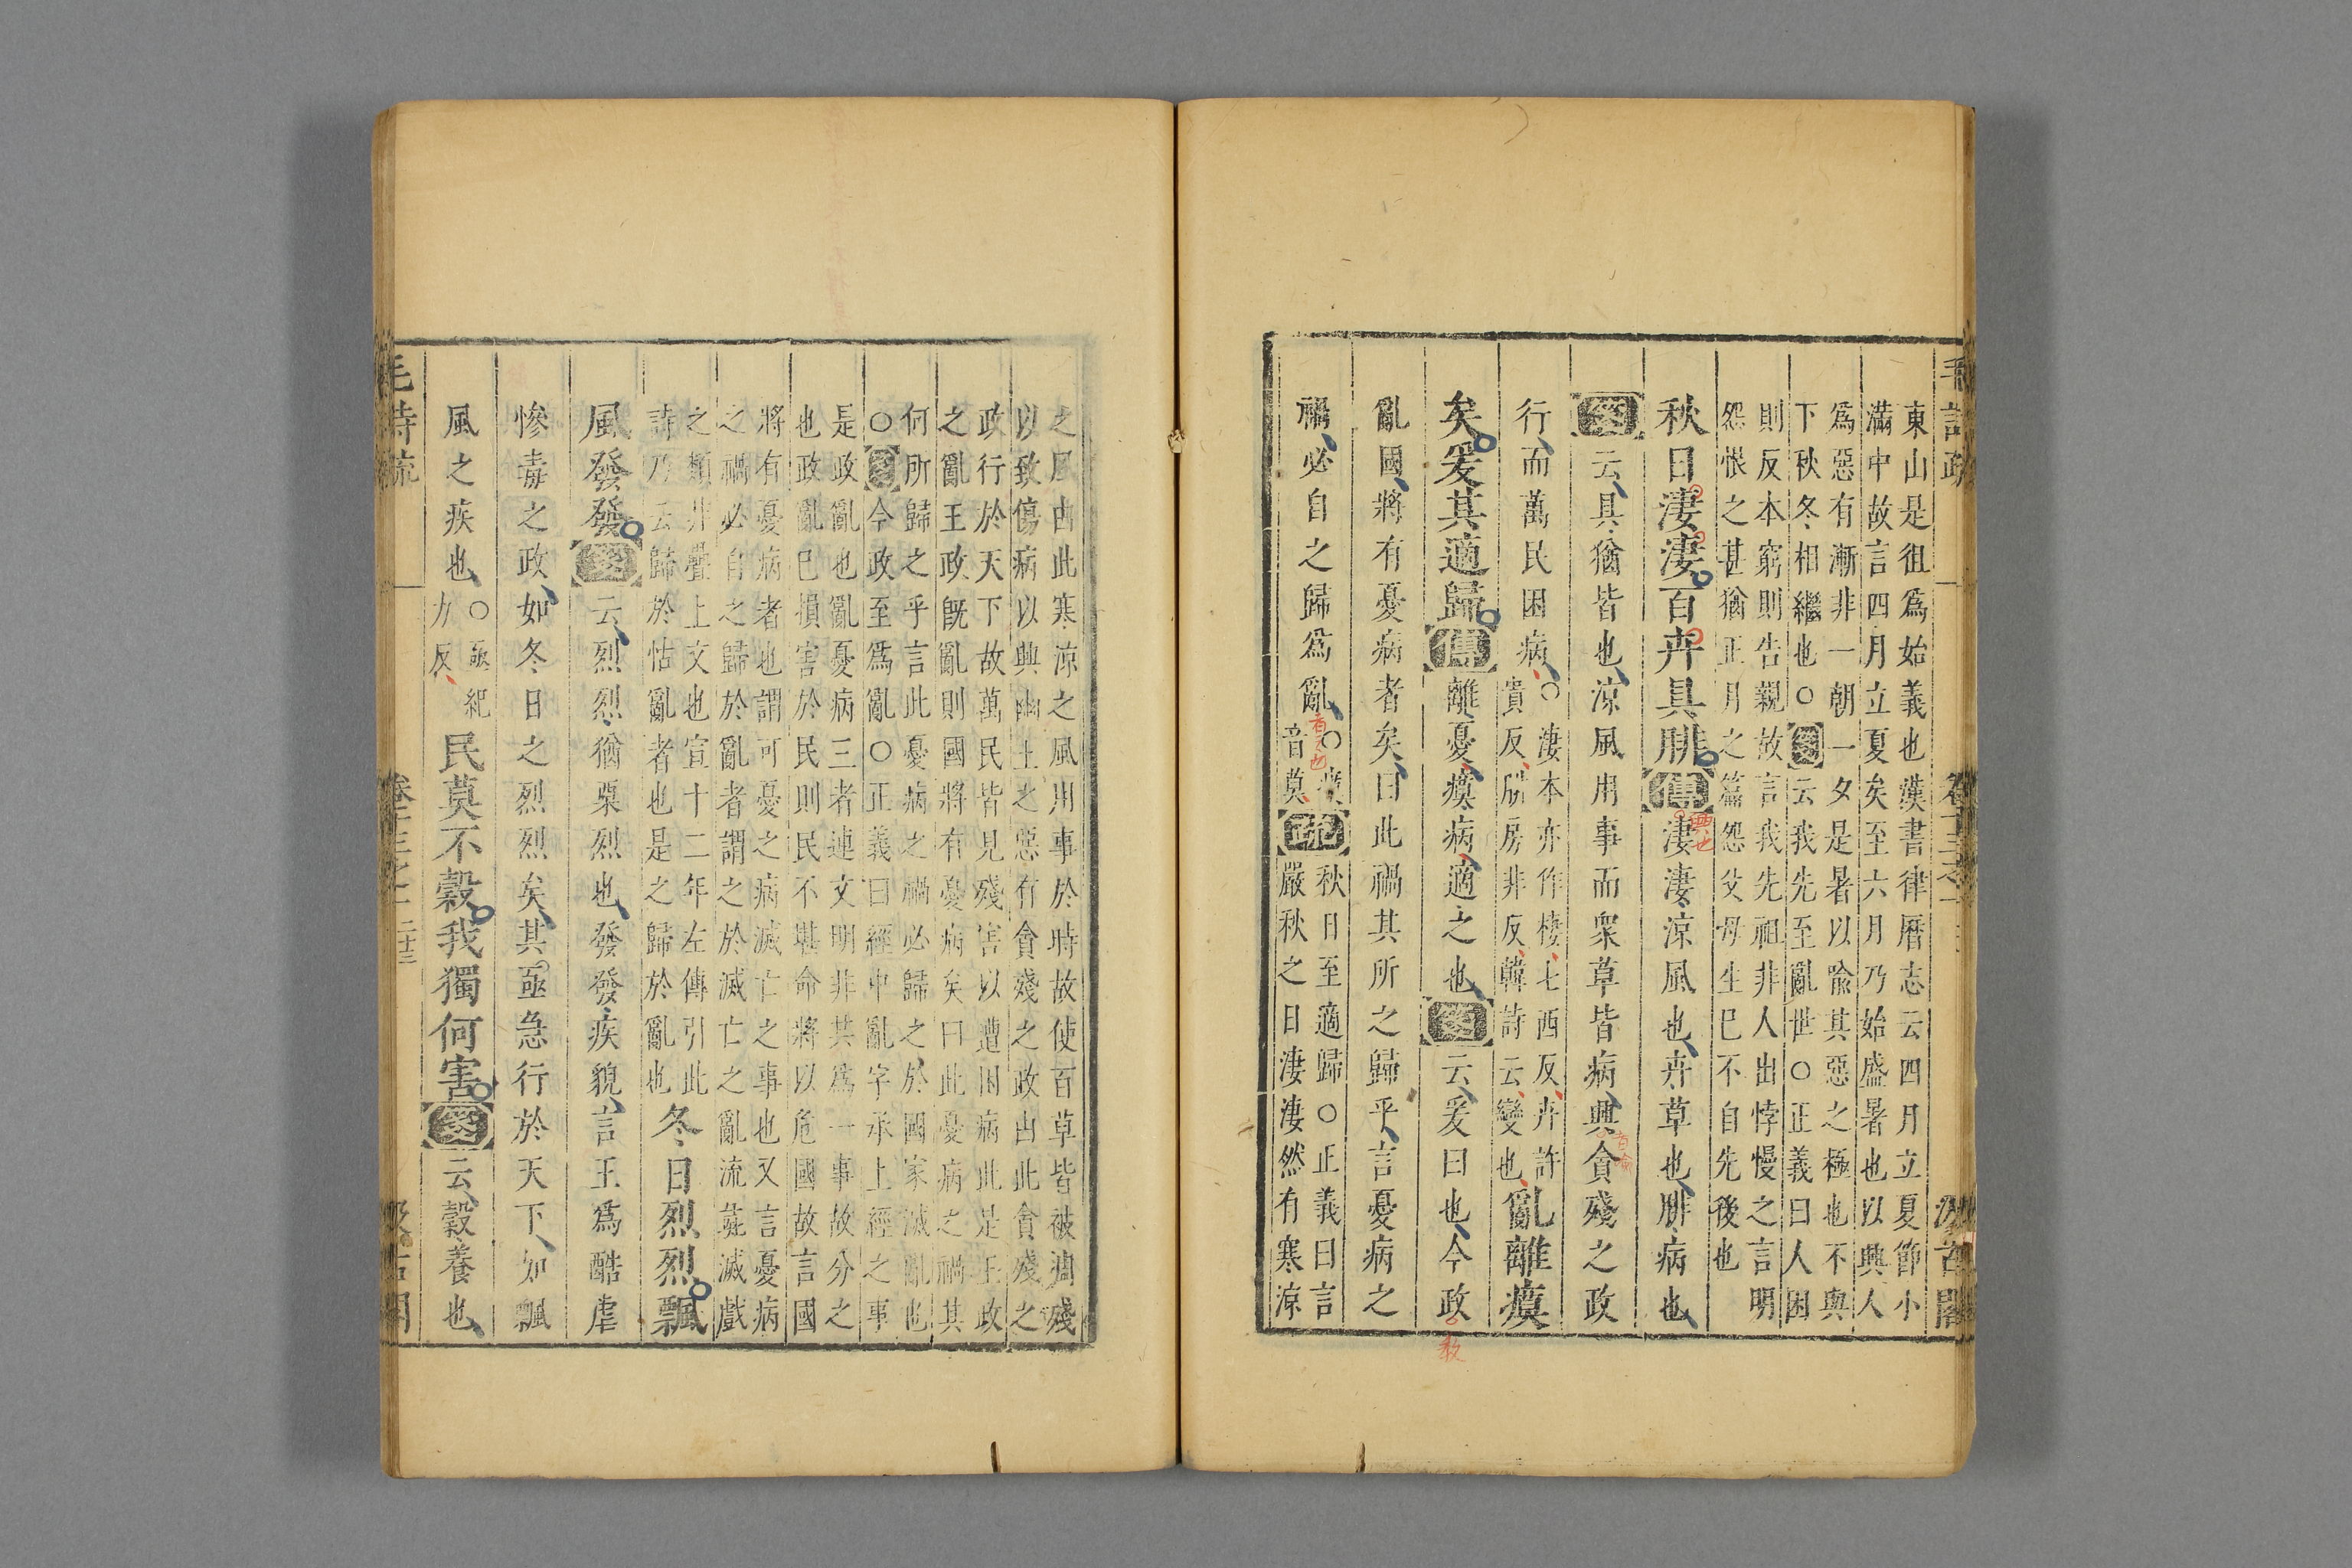 毛詩疏 卷十三之一 汲古閣
東山是徂爲始義也漢書律曆志云四月立夏節小
滿中故言四月立夏矣至六月乃始盛暑也以興人
爲惡有漸非一朝一夕是暑以喩其惡之極也不與
下秋冬相繼也○箋云我先至亂世○正義曰人困
則反本窮則告親故言我先祖非人出悖慢之言明
怨恨之甚猶正月之篇怨父母生巳不自先後也
秋日淒淒百卉具腓傳淒淒涼風也卉草也腓病也
箋云具猶皆也涼風用事而衆草皆病興貪殘之政
行而萬民困病○淒本亦作棲七西反卉許
貴反腓房非反韓詩云變也亂離瘼
矣爰其適歸傳離憂瘼病適之也箋云爰曰也今政
亂國將有憂病者矣曰此禍其所之歸乎言憂病之
禍必自之歸爲亂○瘼音莫疏秋日至適歸○正義曰言
嚴秋之日淒淒然有寒涼
之風由此寒涼之風用事於時故使百草皆被凋殘
以致傷病以興幽王之惡有貪殘之政由此貪殘之
政行於天下故萬民皆見殘害以遭困病此是王政
之亂王政旣亂則國將有憂病矣曰此憂病之禍其
何所歸之乎言此憂病之禍必歸之於國家滅亂也
○箋今政至爲亂○正義曰經中亂字承上經之事
是政亂也亂憂病三者連文明非其爲一事故分之
也政亂巳損害於民則民不堪命將以危國故言國
將有憂病者也謂可憂之病滅亡之事也又言憂病
之禍必自之歸於亂者謂之於滅亡之亂流彘滅戲
之類非疊上文也宣十二年左傳引此
詩乃云歸於怙亂者也是之歸於亂也冬日烈烈飄
風發發箋云烈烈猶栗烈也發發疾貌言王爲酷虐
慘毒之政如冬日之烈烈矣其亟急行於天下如飄
風之疾也○亟紀力反民莫不穀我獨何害箋云穀養也
毛詩疏 卷十三之一 二十三 汲古閣